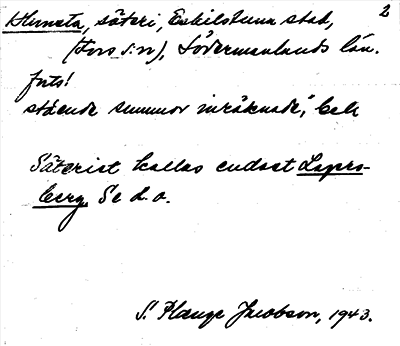 2
Hunsta, säteri, Eskilstuna stad,
(Fors s:n), Södermanlands län.
forts!
stående summor inräknade," bell
Säterist kallas endast Lagers-
berg. Se d.o.
S. Plauge Jacobson, 1943.